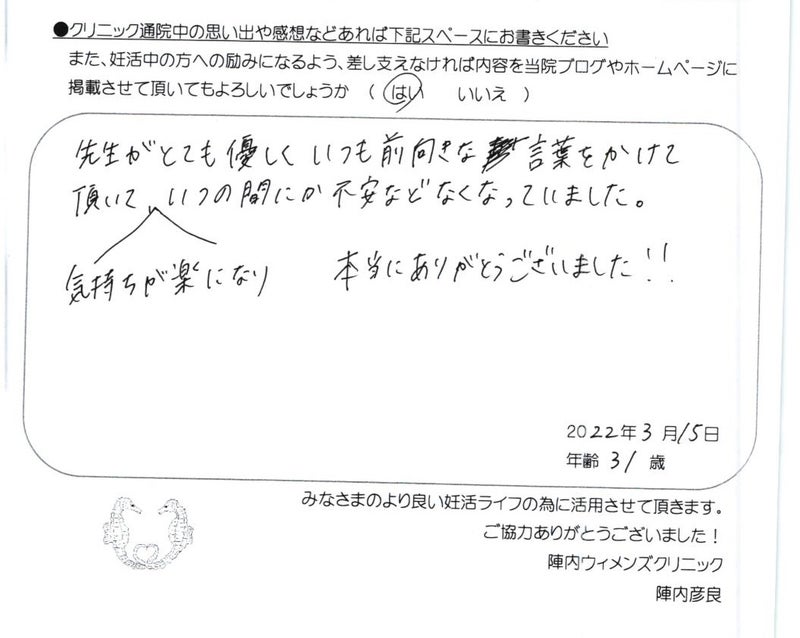 ●クリニック通院中の思い出や感想などあれば下記スペースにお書きください
また、妊活中の方への励みになるよう、差し支えなければ内容を当院ブログやホームページに
掲載させて頂いてもよろしいでしょうか ( はい いいえ )
先生がとても優しくいつも前向きな言葉をかけて
頂いて、いつの間にか不安などなくなっていました。
気持ちが楽になり 本当にありがとうございました!!
2022年3月15日
年齢 31 歳
みなさまのより良い妊活ライフの為に活用させて頂きます。
ご協力ありがとうございました!
陣内ウィメンズクリニック
陣内彦良